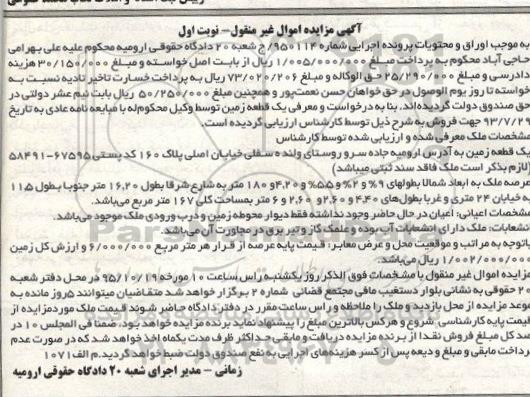 آگهی مزایده اموال غیر منقول - نوبت اول
به موجب اوراق و محتویات پرونده اجرایی شماره ۹۵۰۱۱۴/ج شعبه ۲۰ دادگاه حقوقی ارومیه محکوم علیه علی بهرامی
حاجی آباد محکوم به پرداخت مبلغ ۱/۰۰۵/۰۰۰/۰۰۰ ریال از بابت اصل خواسته و مبلغ ۳۰/۱۵۰/۰۰۰ هزینه
دادرسی و مبلغ ۲۵/۲۹۰/۰۰۰ حق الوکاله و مبلغ ۷۳/۰۲۰/۲۰۶ ریال به پرداخت خسارت تاخیر تادیه نسبت به
خواسته تا روز یوم الوصول در حق خواهان حسن نعمت‌پور و همچنین مبلغ ۵۰/۲۵۰/۰۰۰ ریال بابت نیم عشر دولتی در
حق صندوق دولت گردیده‌اند. بنا به درخواست و معرفی یک قطعه زمین توسط وکیل محکوم‌له با مبایعه نامه عادی به تاریخ
۹۳/۷/۲۹ جهت فروش به شرح ذیل توسط کارشناس ارزیابی گردیده است.
مشخصات ملک معرفی شده و ارزیابی شده توسط کارشناس
یک قطعه زمین به آدرس ارومیه جاده سرو روستای ولنده سفلی خیابان اصلی پلاک ۱۶۰ کد پستی ۶۷۵۹۵-۵۸۴۹۱
(لازم بذکر است ملک فاقد سند ثبتی میباشد)
عرصه ملک به ابعاد شمالا بطولهای ۹% و ۲% و ۵۵% و ۴.۲۰ و ۱۸۰ متر به شارع شرقا بطول ۱۶.۲۰ متر جنوبا بطول ۱۱۵
به خیابان ۲۴ متری و غربا بطول‌های ۴.۴۰ و ۲.۶۰ و ۲.۶۰ و ۶ متر بمساحت کلی ۱۶۷ متر مربع می‌باشد.
مشخصات اعیانی: اعیان در حال حاضر وجود نداشته فقط دیوار محوطه زمین و درب ورودی ملک موجود می‌باشد.
انشعابات: ملک دارای انشعابات آب بوده و علمک گاز و تیر برق در مجاورت آن می‌باشد.
باتوجه به مراتب و موقعیت محل و عرض معابر: قیمت پایه عرصه از قرار هر متر مربع ۶/۰۰۰/۰۰۰ و ارزش کل زمین
۱/۰۰۲/۰۰۰/۰۰۰ ریال می‌باشد.
مزایده اموال غیر منقول با مشخصات فوق الذکر روز یکشنبه راس ساعت ۱۰ مورخه ۹۵/۱۰/۱۹ در محل دفتر شعبه
۲۰ حقوقی به نشانی بلوار دستغیب مافی مجتمع قضائی شماره ۲ برگزار خواهد شد متقاضیان میتوانند ۵ روز مانده به
موعد مزایده از محل بازدید و ملک را ملاحظه و راس ساعت مقرر در دفتر دادگاه حاضر شوند قیمت ملک مورد مزایده از
قیمت پایه کارشناسی شروع و هرکس بالاترین مبلغ را پیشنهاد نماید برنده مزایده خواهد بود. ضمنا فی المجلس ۱۰ در
صد کل مبلغ فروش نقدا از برنده مزایده دریافت و مابقی حداکثر ظرف مدت یکماه اخذ خواهد شد که در صورت عدم
پرداخت مابقی و مبلغ ودیعه پس از کسر هزینه‌های اجرایی به نفع صندوق دولت ضبط خواهد گردید. م الف ۱۰۷۱
زمانی - مدیر اجرای شعبه ۲۰ دادگاه حقوقی ارومیه